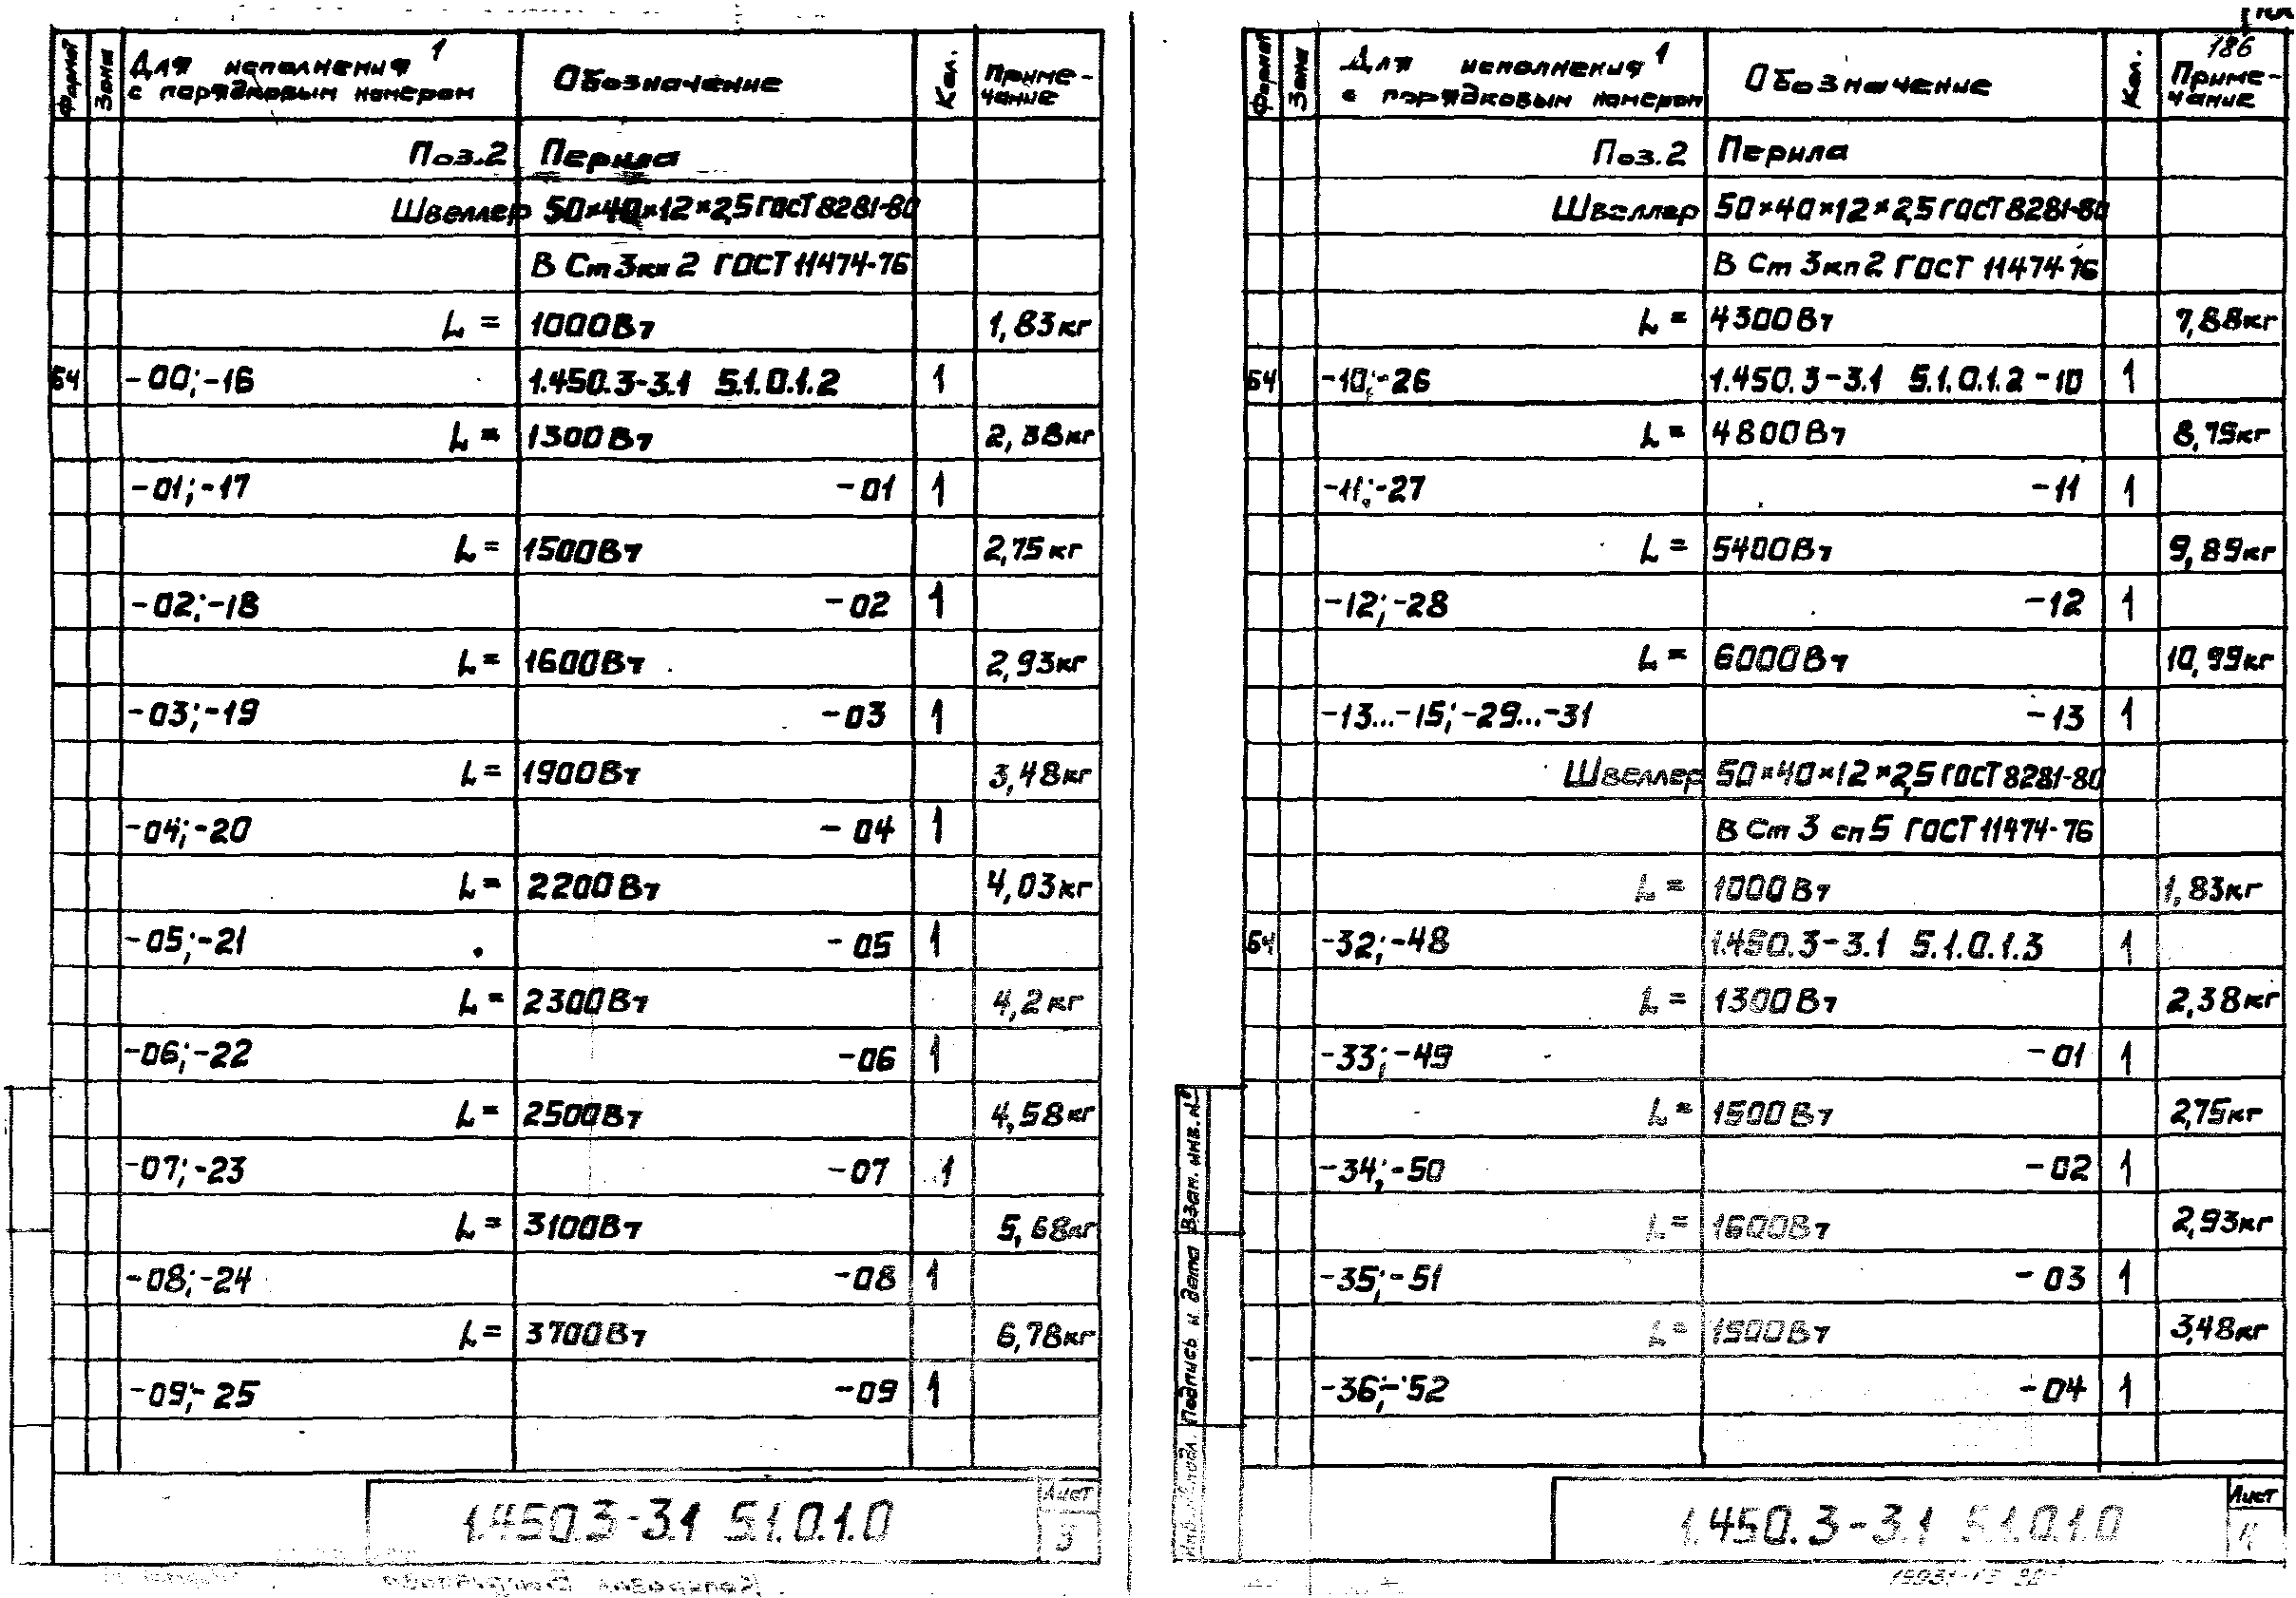 Формат Зона Для исполнения 1 с порядковым номером Обозначение Кол. Приме-чание
Поз.2 Перила
Швеллер 50×40×12×2,5 ГОСТ 8281-80
В Ст 3кп 2 ГОСТ 11474-76
L = 1000Вт 1,83кг
БЧ -00;-16 1.450.3-3.1 5.1.0.1.2 1
L = 1300Вт 2,38кг
-01;-17 -01 1
L = 1500Вт 2,75кг
-02;-18 -02 1
L = 1600Вт 2,93кг
-03;-19 -03 1
L = 1900Вт 3,48кг
-04;-20 -04 1
L = 2200Вт 4,03кг
-05;-21 -05 1
L = 2300Вт 4,2кг
-06;-22 -06 1
L = 2500Вт 4,58кг
-07;-23 -07 1
L = 3100Вт 5,68кг
-08;-24 -08 1
L = 3700Вт 6,78кг
-09;-25 -09 1
1.450.3-3.1 5.1.0.1.0
Лист
3
186
Формат Зона Для исполнения 1 с порядковым номером Обозначение Кол. Приме-чание
Поз.2 Перила
Швеллер 50×40×12×2,5 ГОСТ 8281-80
В Ст 3кп 2 ГОСТ 11474-76
L = 4300Вт 7,88кг
БЧ -10;-26 1.450.3-3.1 5.1.0.1.2 -10 1
L = 4800Вт 8,79кг
-11;-27 -11 1
L = 5400Вт 9,89кг
-12;-28 -12 1
L = 6000Вт 10,99кг
-13...-15;-29...-31 -13 1
Швеллер 50×40×12×2,5 ГОСТ 8281-80
В Ст 3 сп 5 ГОСТ 11474-76
L = 1000Вт 1,83кг
БЧ -32;-48 1.450.3-3.1 5.1.0.1.3 1
L = 1300Вт 2,38кг
-33;-49 -01 1
L = 1500Вт 2,75кг
-34;-50 -02 1
L = 1600Вт 2,93кг
-35;-51 -03 1
L = 1900Вт 3,48кг
-36;-52 -04 1
Инв.№ подл. Подпись и дата Взам. инв. №
1.450.3-3.1 5.1.0.1.0
Лист
4